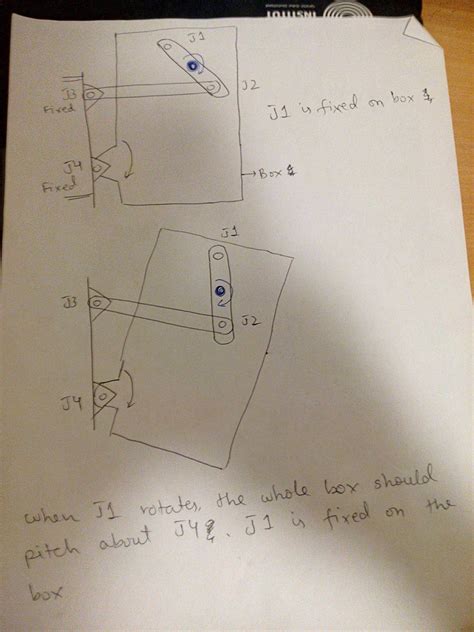 INSTITUT
J1
J3
Fixed
J2
J1 is fixed on box
J4
Fixed
Box
J1
J3
J2
J4
when J1 rotates, the whole box should
pitch about J4 . J1 is fixed on the
box